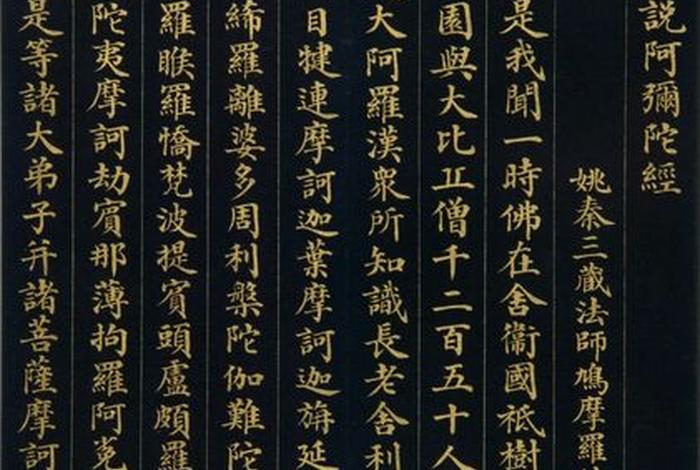 說阿彌陀經
姚秦三藏法師鳩摩羅
是我聞一時佛在舍衞國祇樹
園與大比丘僧千二百五十人
大阿羅漢衆所知識長老舍利
目犍連摩訶迦葉摩訶迦旃延
絺羅離婆多周利槃陀伽難陀
羅睺羅憍梵波提賓頭盧頗羅
陀夷摩訶劫賓那薄拘羅阿㝹
是等諸大弟子并諸菩薩摩訶